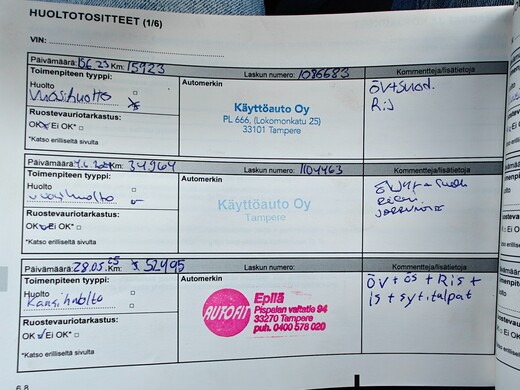 HUOLTOTOSITTEET (1/6)
VIN:
Päivämäärä: Km: 15923 Laskun numero: 1086683 Kommentteja/lisätietoja
Toimenpiteen tyyppi: Automerkin
Huolto
Vuosihuolto
Käyttöauto Oy
PL 666, (Lokomonkatu 25)
33101 Tampere
Ris
Ruostevauriotarkastus:
OK Ei OK*
*Katso erilliseltä sivulta
Päivämäärä: Km: 34964 Laskun numero: 1104463 Kommentteja/lisätietoja
Toimenpiteen tyyppi: Automerkin
Huolto
vuosihuolto
Käyttöauto Oy
Tampere
Ruostevauriotarkastus:
OK Ei OK*
*Katso erilliseltä sivulta
Päivämäärä: 28.05.25 Km: 52495 Laskun numero: Kommentteja/lisätietoja
Toimenpiteen tyyppi: Automerkin
Huolto
Kausihuolto
AUTOFIT
Epilä
Pispalan valtatie 94
33270 Tampere
puh. 0400 578 020
öv + ös + Ris +
is + syt.tulpat
Ruostevauriotarkastus:
OK Ei OK*
*Katso erilliseltä sivulta
6-8